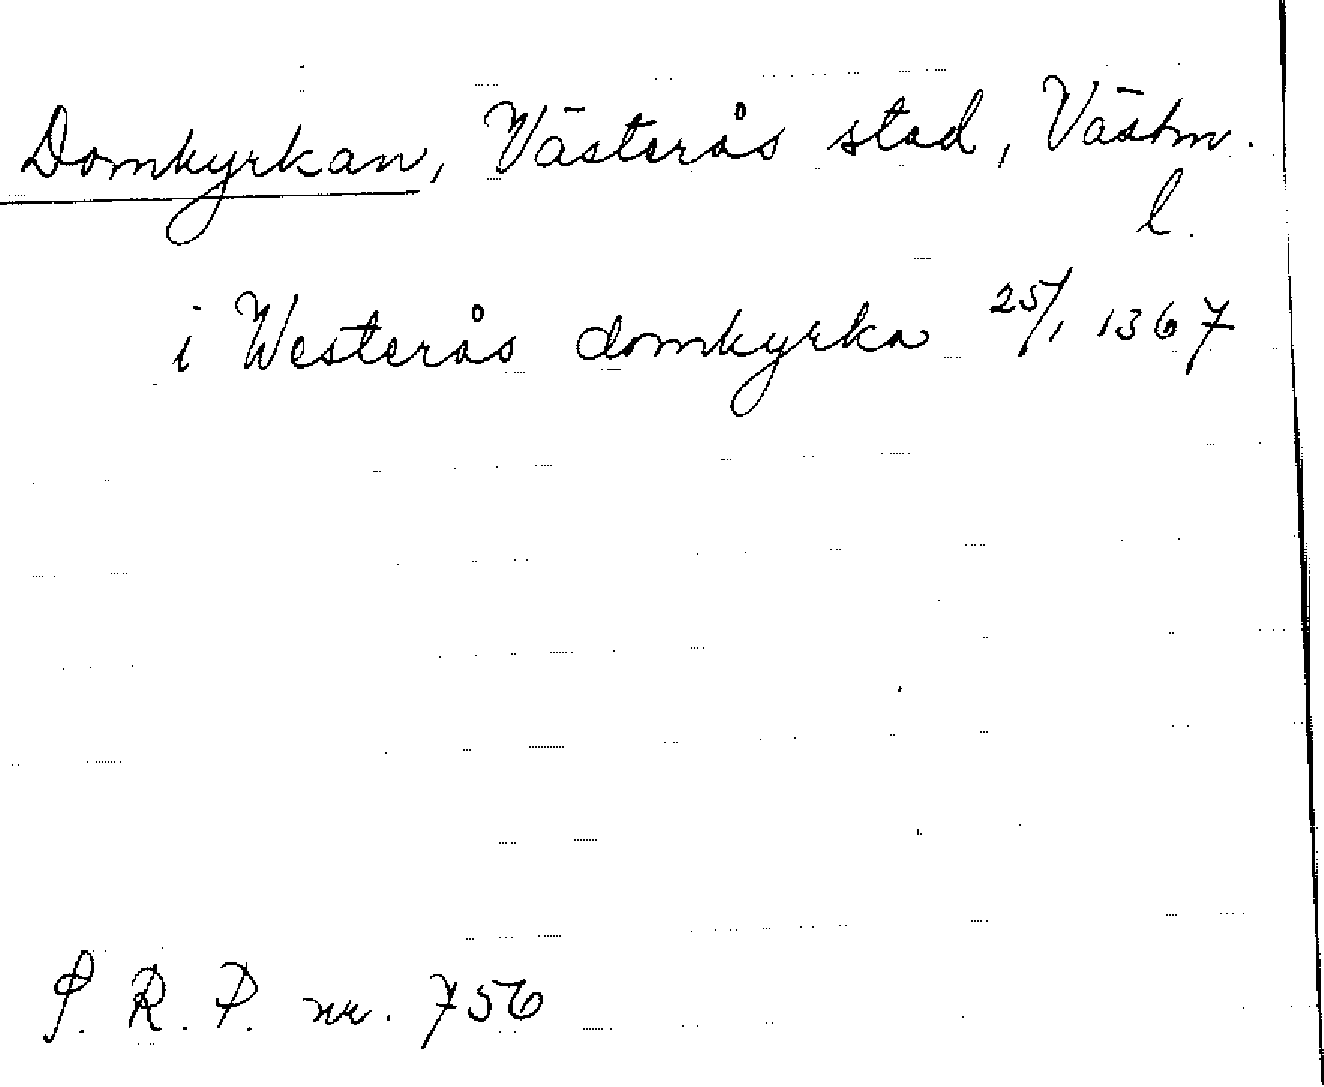 Domkyrkan, Västerås stad, Västm.
l.
i Westerås domkyrka 25/1 1367
S. R. P. nr. 756